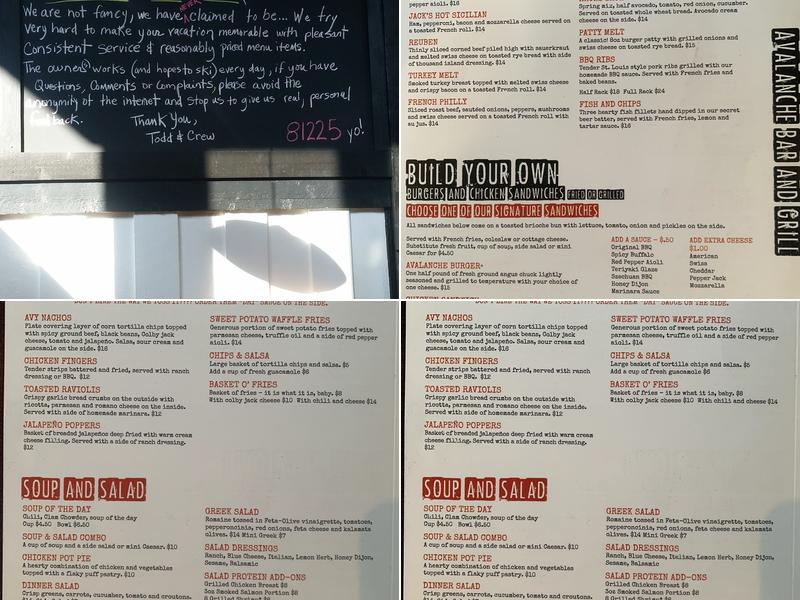 We are not fancy, we have NEVER claimed to be... We try
very hard to make your vacation memorable with pleasant
Consistent service & reasonably priced menu items.
The owners works (and hopes to ski) every day, if you have
Questions, Comments or Complaints, please avoid the
anonymity of the internet and stop us to give us real, personal
feedback.
Thank You,
Todd & Crew
81225 yo!
pepper aioli. $16
JACK'S HOT SICILIAN
Ham, pepperoni, bacon and mozzarella cheese served on
a toasted French roll. $14
REUBEN
Thinly sliced corned beef piled high with sauerkraut
and melted swiss cheese on toasted rye bread with side
of thousand island dressing. $14
TURKEY MELT
Smoked turkey breast topped with melted swiss cheese
and crispy bacon on a toasted French roll. $14
FRENCH PHILLY
Sliced roast beef, sautéed onions, peppers, mushrooms
and swiss cheese served on a toasted French roll with
au jus. $14
Spring mix, half avocado, tomato, red onion, cucumber.
Served on toasted whole wheat bread. Avocado cream
cheese on the side. $14
PATTY MELT
A classic! 8oz burger patty with grilled onions and
swiss cheese on toasted rye bread. $15
BBQ RIBS
Tender St. Louis style pork ribs grilled with our
homemade BBQ sauce. Served with French fries and
baked beans.
Half Rack $18 Full Rack $24
FISH AND CHIPS
Three hearty fish fillets hand dipped in our secret
beer batter, served with French fries, lemon and
tartar sauce. $16
AVALANCHE BAR AND GRILL
BUILD YOUR OWN
BURGERS AND CHICKEN SANDWICHES FRIED OR GRILLED
CHOOSE ONE OF OUR SIGNATURE SANDWICHES
All sandwiches below come on a toasted brioche bun with lettuce, tomato, onion and pickles on the side.
Served with French fries, coleslaw or cottage cheese.
Substitute fresh fruit, cup of soup, side salad or mini
Caesar for $4.50
AVALANCHE BURGER*
One half pound of fresh ground angus chuck lightly
seasoned and grilled to temperature with your choice of
one cheese. $15
ADD A SAUCE - $.50
Original BBQ
Spicy Buffalo
Red Pepper Aioli
Teriyaki Glaze
Szechuan BBQ
Honey Dijon
Marinara Sauce
ADD EXTRA CHEESE
$1.00
American
Swiss
Cheddar
Pepper Jack
Mozzarella
AVY NACHOS
Plate covering layer of corn tortilla chips topped
with spicy ground beef, black beans, Colby jack
cheese, tomato and jalapeño. Salsa, sour cream and
guacamole on the side. $16
CHICKEN FINGERS
Tender strips battered and fried, served with ranch
dressing or BBQ. $12
TOASTED RAVIOLIS
Crispy garlic bread crumbs on the outside with
ricotta, parmesan and romano cheese on the inside.
Served with side of homemade marinara. $12
JALAPEÑO POPPERS
Basket of breaded jalapeños deep fried with warm cream
cheese filling. Served with a side of ranch dressing.
$12
SWEET POTATO WAFFLE FRIES
Generous portion of sweet potato fries topped with
parmesan cheese, truffle oil and a side of red pepper
aioli. $14
CHIPS & SALSA
Large basket of tortilla chips and salsa. $5
Add a cup of fresh guacamole $6
BASKET O' FRIES
Basket of fries - it is what it is, baby. $8
With colby jack cheese $10 With chili and cheese $14
SOUP AND SALAD
SOUP OF THE DAY
Chili, Clam Chowder, soup of the day
Cup $4.50 Bowl $6.50
SOUP & SALAD COMBO
A cup of soup and a side salad or mini Caesar. $10
CHICKEN POT PIE
A hearty combination of chicken and vegetables
topped with a flaky puff pastry. $10
DINNER SALAD
Crisp greens, carrots, cucumber, tomato and croutons.
GREEK SALAD
Romaine tossed in Feta-Olive vinaigrette, tomatoes,
pepperoncinis, red onions, feta cheese and kalamata
olives. $14 Mini Greek $7
SALAD DRESSINGS
Ranch, Blue Cheese, Italian, Lemon Herb, Honey Dijon,
Sesame, Balsamic
SALAD PROTEIN ADD-ONS
Grilled Chicken Breast $6
5oz Smoked Salmon Portion $8
AVY NACHOS
Plate covering layer of corn tortilla chips topped
with spicy ground beef, black beans, Colby jack
cheese, tomato and jalapeño. Salsa, sour cream and
guacamole on the side. $16
CHICKEN FINGERS
Tender strips battered and fried, served with ranch
dressing or BBQ. $12
TOASTED RAVIOLIS
Crispy garlic bread crumbs on the outside with
ricotta, parmesan and romano cheese on the inside.
Served with side of homemade marinara. $12
JALAPEÑO POPPERS
Basket of breaded jalapeños deep fried with warm cream
cheese filling. Served with a side of ranch dressing.
$12
SWEET POTATO WAFFLE FRIES
Generous portion of sweet potato fries topped with
parmesan cheese, truffle oil and a side of red pepper
aioli. $14
CHIPS & SALSA
Large basket of tortilla chips and salsa. $5
Add a cup of fresh guacamole $6
BASKET O' FRIES
Basket of fries - it is what it is, baby. $8
With colby jack cheese $10 With chili and cheese $14
SOUP AND SALAD
SOUP OF THE DAY
Chili, Clam Chowder, soup of the day
Cup $4.50 Bowl $6.50
SOUP & SALAD COMBO
A cup of soup and a side salad or mini Caesar. $10
CHICKEN POT PIE
A hearty combination of chicken and vegetables
topped with a flaky puff pastry. $10
DINNER SALAD
Crisp greens, carrots, cucumber, tomato and croutons.
GREEK SALAD
Romaine tossed in Feta-Olive vinaigrette, tomatoes,
pepperoncinis, red onions, feta cheese and kalamata
olives. $14 Mini Greek $7
SALAD DRESSINGS
Ranch, Blue Cheese, Italian, Lemon Herb, Honey Dijon,
Sesame, Balsamic
SALAD PROTEIN ADD-ONS
Grilled Chicken Breast $6
5oz Smoked Salmon Portion $8